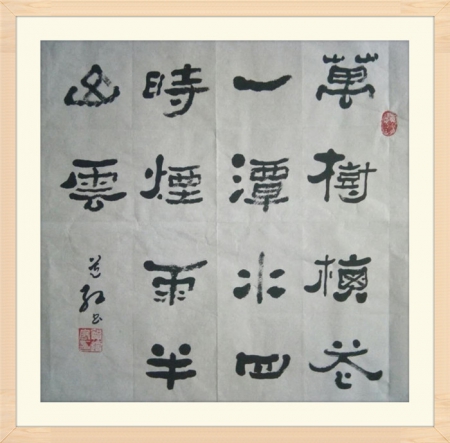 萬樹梅花
一潭水四
時煙雨半
山雲